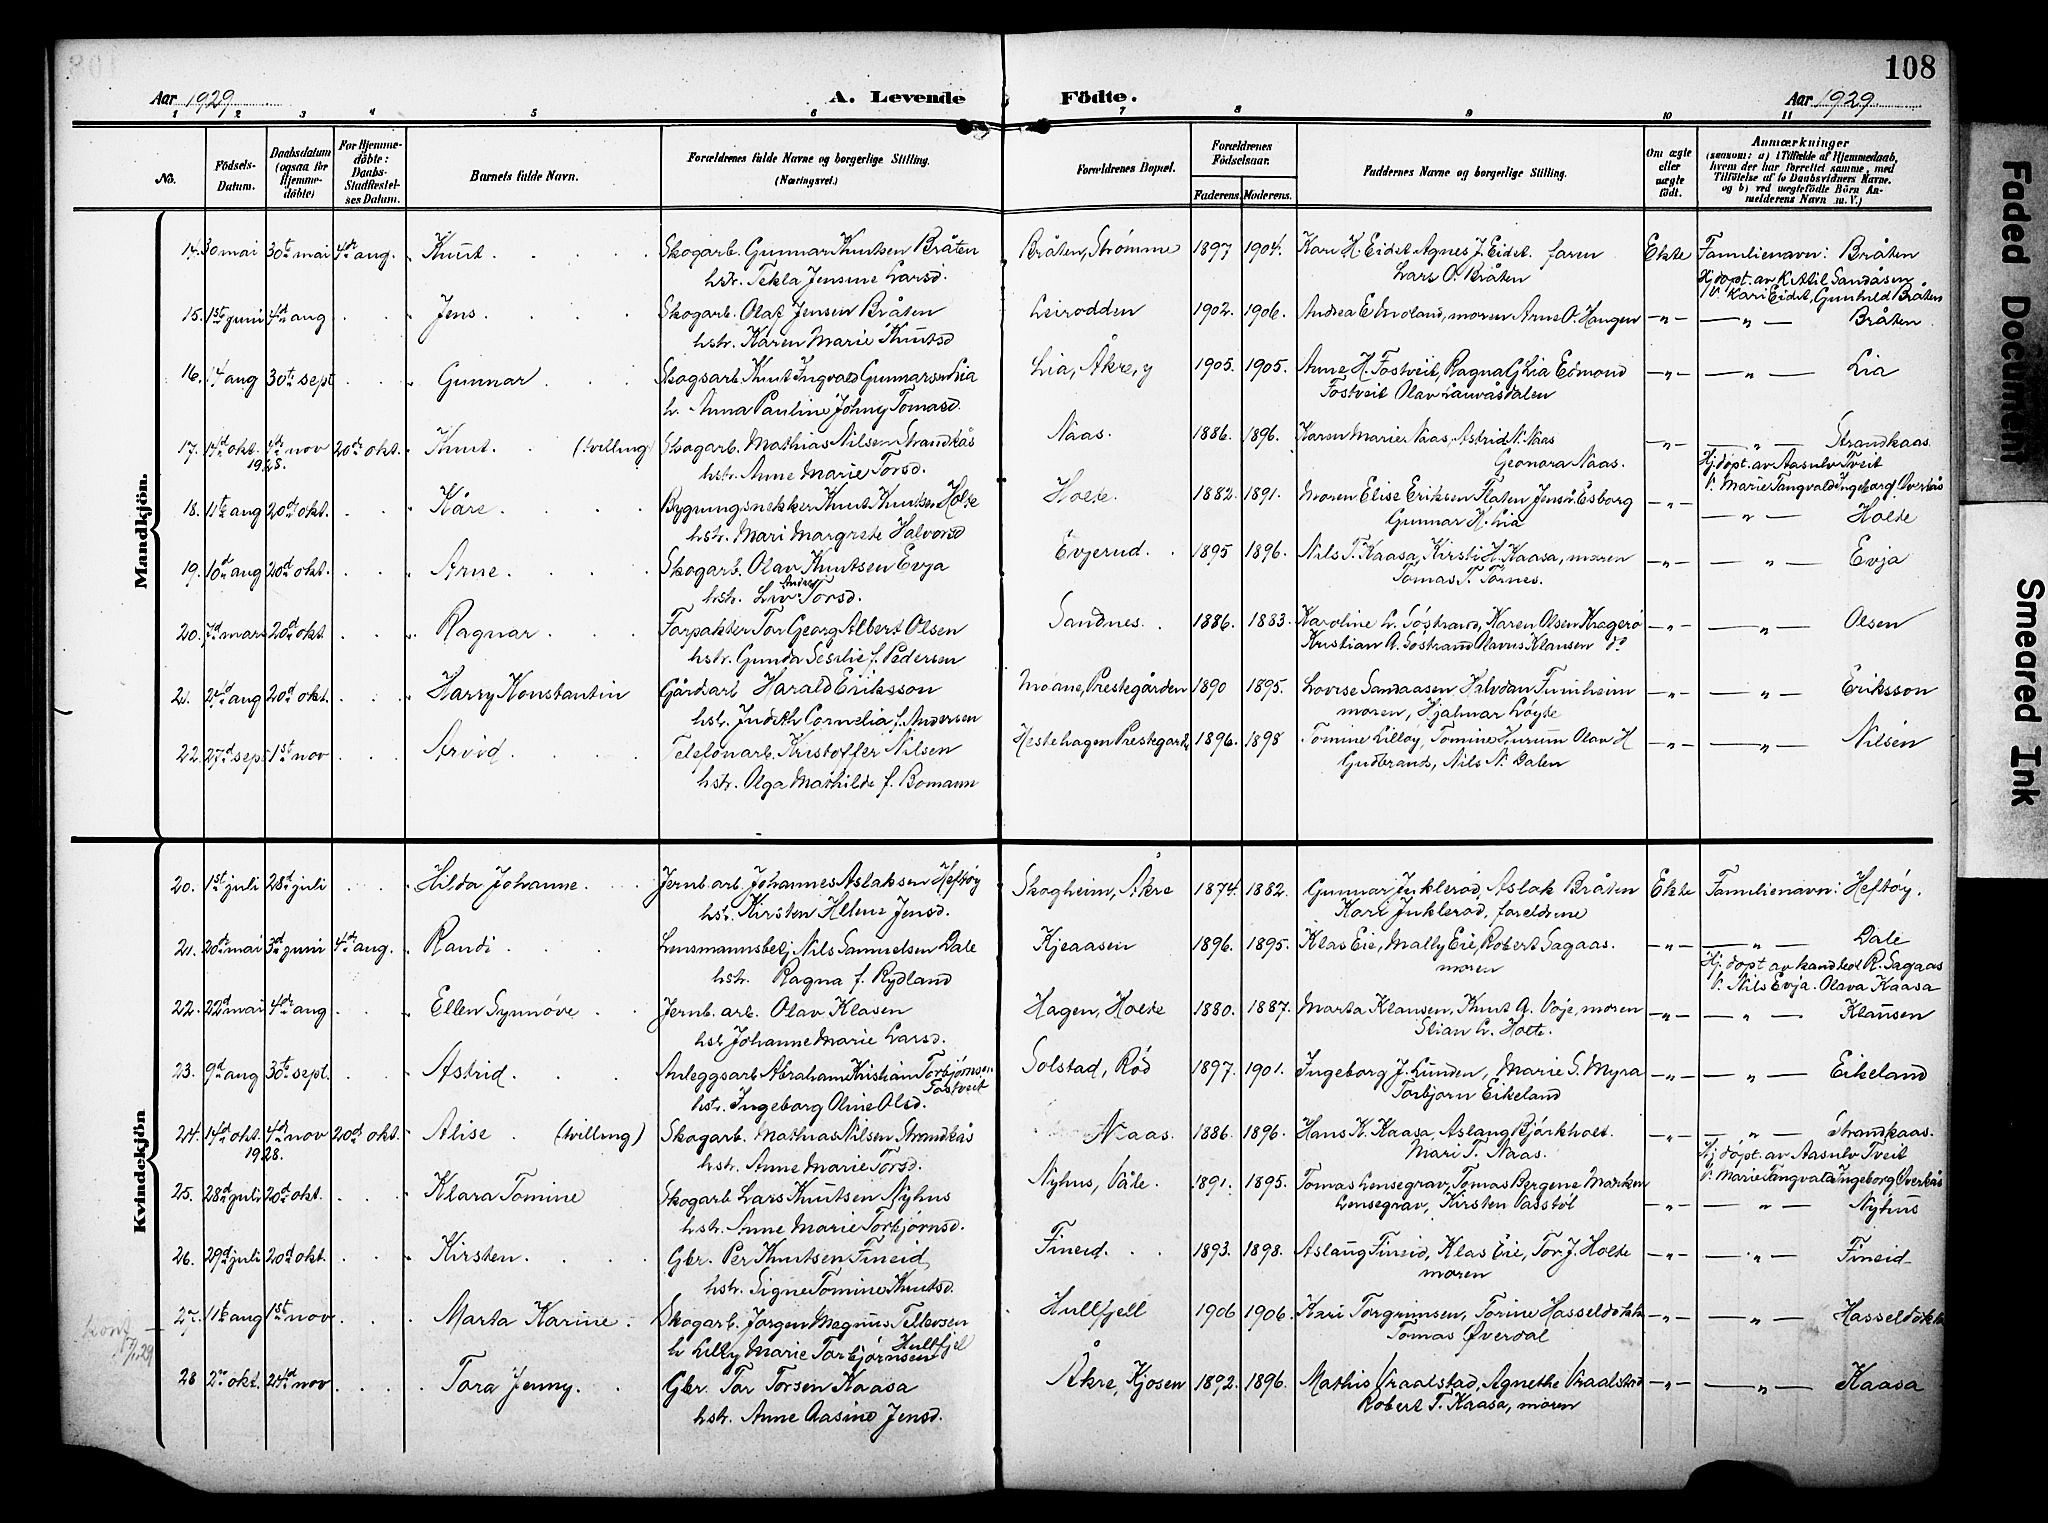 108
Aar 1929 A. Levende Födte. Aar 1929
1 2 3 4 5 6 7 8 9 10 11
No.
Födsels-Datum.
Daabsdatum (ogsaa for Hjemme-döbte)
For Hjemme-döbte: Daabs-Stadfæstel-ses Datum.
Barnets fulde Navn.
Forældrenes fulde Navne og borgerlige Stilling. (Næringsvei.)
Forældrenes Bopæl.
Forældrenes Födselsaar.
Faderens. Moderens.
Faddernes Navne og borgerlige Stilling.
Om ægte eller uægte födt.
Anmærkninger
(saasom: a) i Tilfælde af Hjemmedaab, hvem der har forrettet samme, med Tilföielse af to Daabsvidners Navne, og b) ved uægtefödte Börn An-melderens Navn m. V.)
Mandkjön.
14. 30 mai 30te mai 4de aug. Knut Skogarb. Gunnar Knutsen Bråten Bråten, Strømme 1897 1904. Kari H. Eidet Agnes J. Eidet. faren Ekte Familienavn: Bråten
hstr. Tekla Jensine Larsd. Lars O. Bråten Hj.døpt. av K. Atil Sandåsen
V. Kari Eidet, Gunhild Bråten
15. 1st juni 4d aug Jens Skogarb. Olaf Jensen Bråten Leirodden 1902. 1906. Andrea E. Moland, moren Arne O. Haugen -"- -"- Bråten
hstr. Karen Marie Knutsd
16. 14 aug 30te sept Gunnar Skogsarb. Knut Ingvald Gunnarsen Lia Lia, Åkre, y 1905. 1905. Anne H. Tostveit, Ragna G Lia Edmond -"- -"- Lia
h. Anna Pauline Johny Tomasd. Tostveit Olav Lauvåsdalen
17. 14d okt. 4de nov 20de okt. Knut (tvilling) Skogarb. Mathias Nilsen Strandkås Naas. 1886. 1896. Karen Marie Naas, Astrid N. Naas -"- -"- Strandkaas.
1928. hstr. Anne Marie Torsd. Geonora Naas. Hj.døpt. av Aasulv Tveit
V. Marie Tangvald Ingeborg Överkås
18. 11te aug 20de okt. Kåre Bygningsnekker Knut Knutsen Holte Holte. 1882. 1891. Moren Elise Eriksen Flaten Jens Esborg -"- -"- Holte
hstr. Mari Margrete Halvorsd Gunnar H. Lia
19. 10d aug 20de okt. Arne Skogarb. Olav Knutsen Evja Evjerud. 1895 1896. Nils T. Kaasa, Kirsti H. Kaasa, moren -"- -"- Evja
hstr. Liv Andrea Torsd. Tomas T. Tornes.
20. 7d mars 20de okt Ragnar Forpakter Tor Georg Albert Olsen Sandnes. 1886. 1883. Karoline L. Söstrand, Karen Olsen Kragerø -"- -"- Olsen
hstr. Gunda Sesilie f. Pedersen Kristian A. Söstrand Olavus Klausen do
21. 24d aug 20d okt. Harry Konstantin Gårdarb Harald Eriksson Moane, Prestegården 1890 1895. Lovise Sandaasen, Halvdan Furuheim -"- -"- Eriksson
hstr. Judith Cornelia f. Andersen moren, Hjalmar Löyte
22. 27d sept 1st nov Arvid Telefonarb. Kristoffer Nilsen Hestehagen Prestegarde 1896. 1898 Tomine Lilloy, Tomine Hurum Olav H -"- -"- Nilsen
hstr. Olga Mathilde f. Bomann Gudbrand, Nils N. Dalen
Kvindekjön
20. 1st juli 28de juli Hilda Johanne Jernb.arb. Johannes Aslaksen Heftøy Skogheim, Åkre 1874. 1882. Gunnar Juklerød, Aslak Bråten Ekte Familienavn: Heftøy.
hstr. Kirsten Helene Jensd. Kari Juklerød, foreldrene
21. 20de mai 3d juni 4de aug. Randi Lensmannsbetj Nils Samuelsen Dale Kjeaasen 1896. 1895. Klas Eie, Mally Eie, Robert Sagaas. -"- -"- Dale
hstr. Ragna f. Rydland moren Hj.døpt av R. Sagaas
V. Nils Evja. Olava Kaasa
22. 22d mai 4de aug Ellen Synnöve Jernb. arb. Olav Klasen Hagen, Holte 1880. 1887. Marta Klausen, Knut A. Voje, moren -"- -"- Klausen
hstr Johanne Marie Larsd. Stian L. Holte.
23. 9d aug 30te sept. Astrid Anleggsarb Abraham Kristian Torbjørnsen Solstad, Rød 1897. 1901. Ingeborg J. Lunden, Marie S. Myra -"- -"- Eikeland
Tostveit
hstr. Ingeborg Oline Olsd. Torbjørn Eikeland
24. 14d okt. 4de nov 20d okt. Alise (tvilling) Skogarb. Mathias Nilsen Strandkås Naas. 1886. 1896. Hans K. Kaasa, Aslaug Björkholt. -"- -"- Strandkaas.
1928. hstr. Anne Marie Torsd. Mari T. Naas. Hj.døpt. av Aasulv Tveit
V. Marie Tangvald Ingeborg Överkås
25. 28de juli 20d okt. Klara Tomine Skogarb Lars Knutsen Nyhus Nyhus, Våle. 1891. 1895. Tomas Lensegrav, Tomas Bergene Marken -"- -"- Nyhus
hstr. Anne Marie Torbjørnsd. Lensegrav, Kirsten Vasstöl
26. 29d juli 20d okt. Kirsten. Gbr. Per Knutsen Fineid Fineid. 1893. 1898. Aslaug Fineid, Klas Eie, Tor J. Holte -"- -"- Fineid
hstr. Signe Tomine Knutsd. moren
27. 11te aug 1st nov Marta Karine. Skogarb. Jørgen Magnus Tellevsen Hullfjell 1906 1906. Kari Torgrimsen, Torine Hasseldokka -"- -"- Hasseldokka
Hullfjel
h Lilly Marie Torbjørnsen Tomas Øverdal
28 2n okt. 24d nov Tora Jenny. Gbr. Tor Torsen Kaasa Åkre, Kjosen 1892. 1896. Mathis Vraalstad, Agnethe Vraalstad -"- -"- Kaasa
hstr. Anne Aasine Jensd. Robert T. Kaasa, moren
Faded Document
Smeared Ink